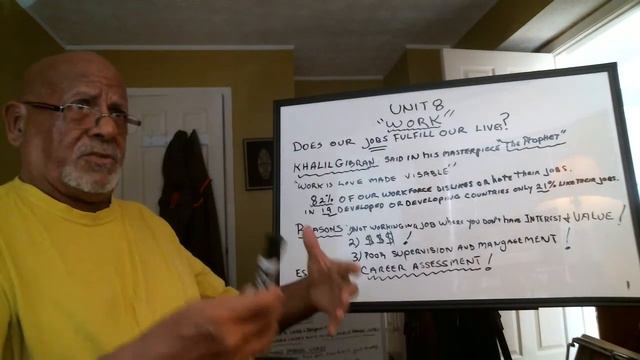 UNIT 8
"WORK"
DOES OUR JOBS FULFILL OUR LIVE?
KHALIL GIBRAN SAID IN HIS MASTERPIECE "The Prophet"
"WORK IS LOVE MADE VISABLE"
82% OF OUR WORKFORCE DISLIKES OR hate their JOBS.
IN 19 DEVELOPED OR DEVELOPING COUNTRIES ONLY 21% LIKE THEIR JOBS.
REASONS: 1) NOT WORKING JOB WHERE YOU DON'T HAVE INTEREST & VALUE!
2) $$$!
3) POOR SUPERVISION AND MANGEMENT!
CAREER ASSESSMENT!